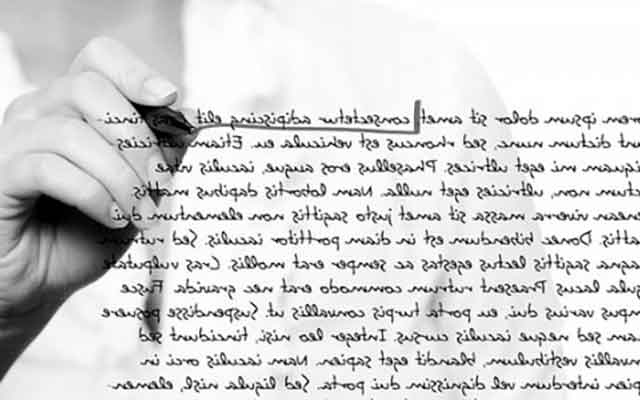 ipsum dolor sit amet consectetur adipiscing elit. Cras tinci-
dictum nunc, sed rhoncus est vehicula eu. Etiam ultricies
mi eget ultrices. Phasellus eros augue, iaculis vitae
non, ultricies eget nulla. Nam lobortis dapibus mattis
viverra massa sit amet justo sagittis non elementum dui
Donec bibendum est in diam porttitor iaculis. Sed rutrum
sagittis lectus egestas ac semper erat mollis. Cras vulputate
lacus. Praesent rutrum commodo erat nec gravida. Fusce
varius dui, eu porta turpis convallis ut. Suspendisse posuere
sed neque iaculis cursus. Integer leo nisi, tincidunt sed
vestibulum, blandit eget sapien. Nam iaculis orci in
interdum vel dignissim dui porta. Sed ligula nisl, elemen-